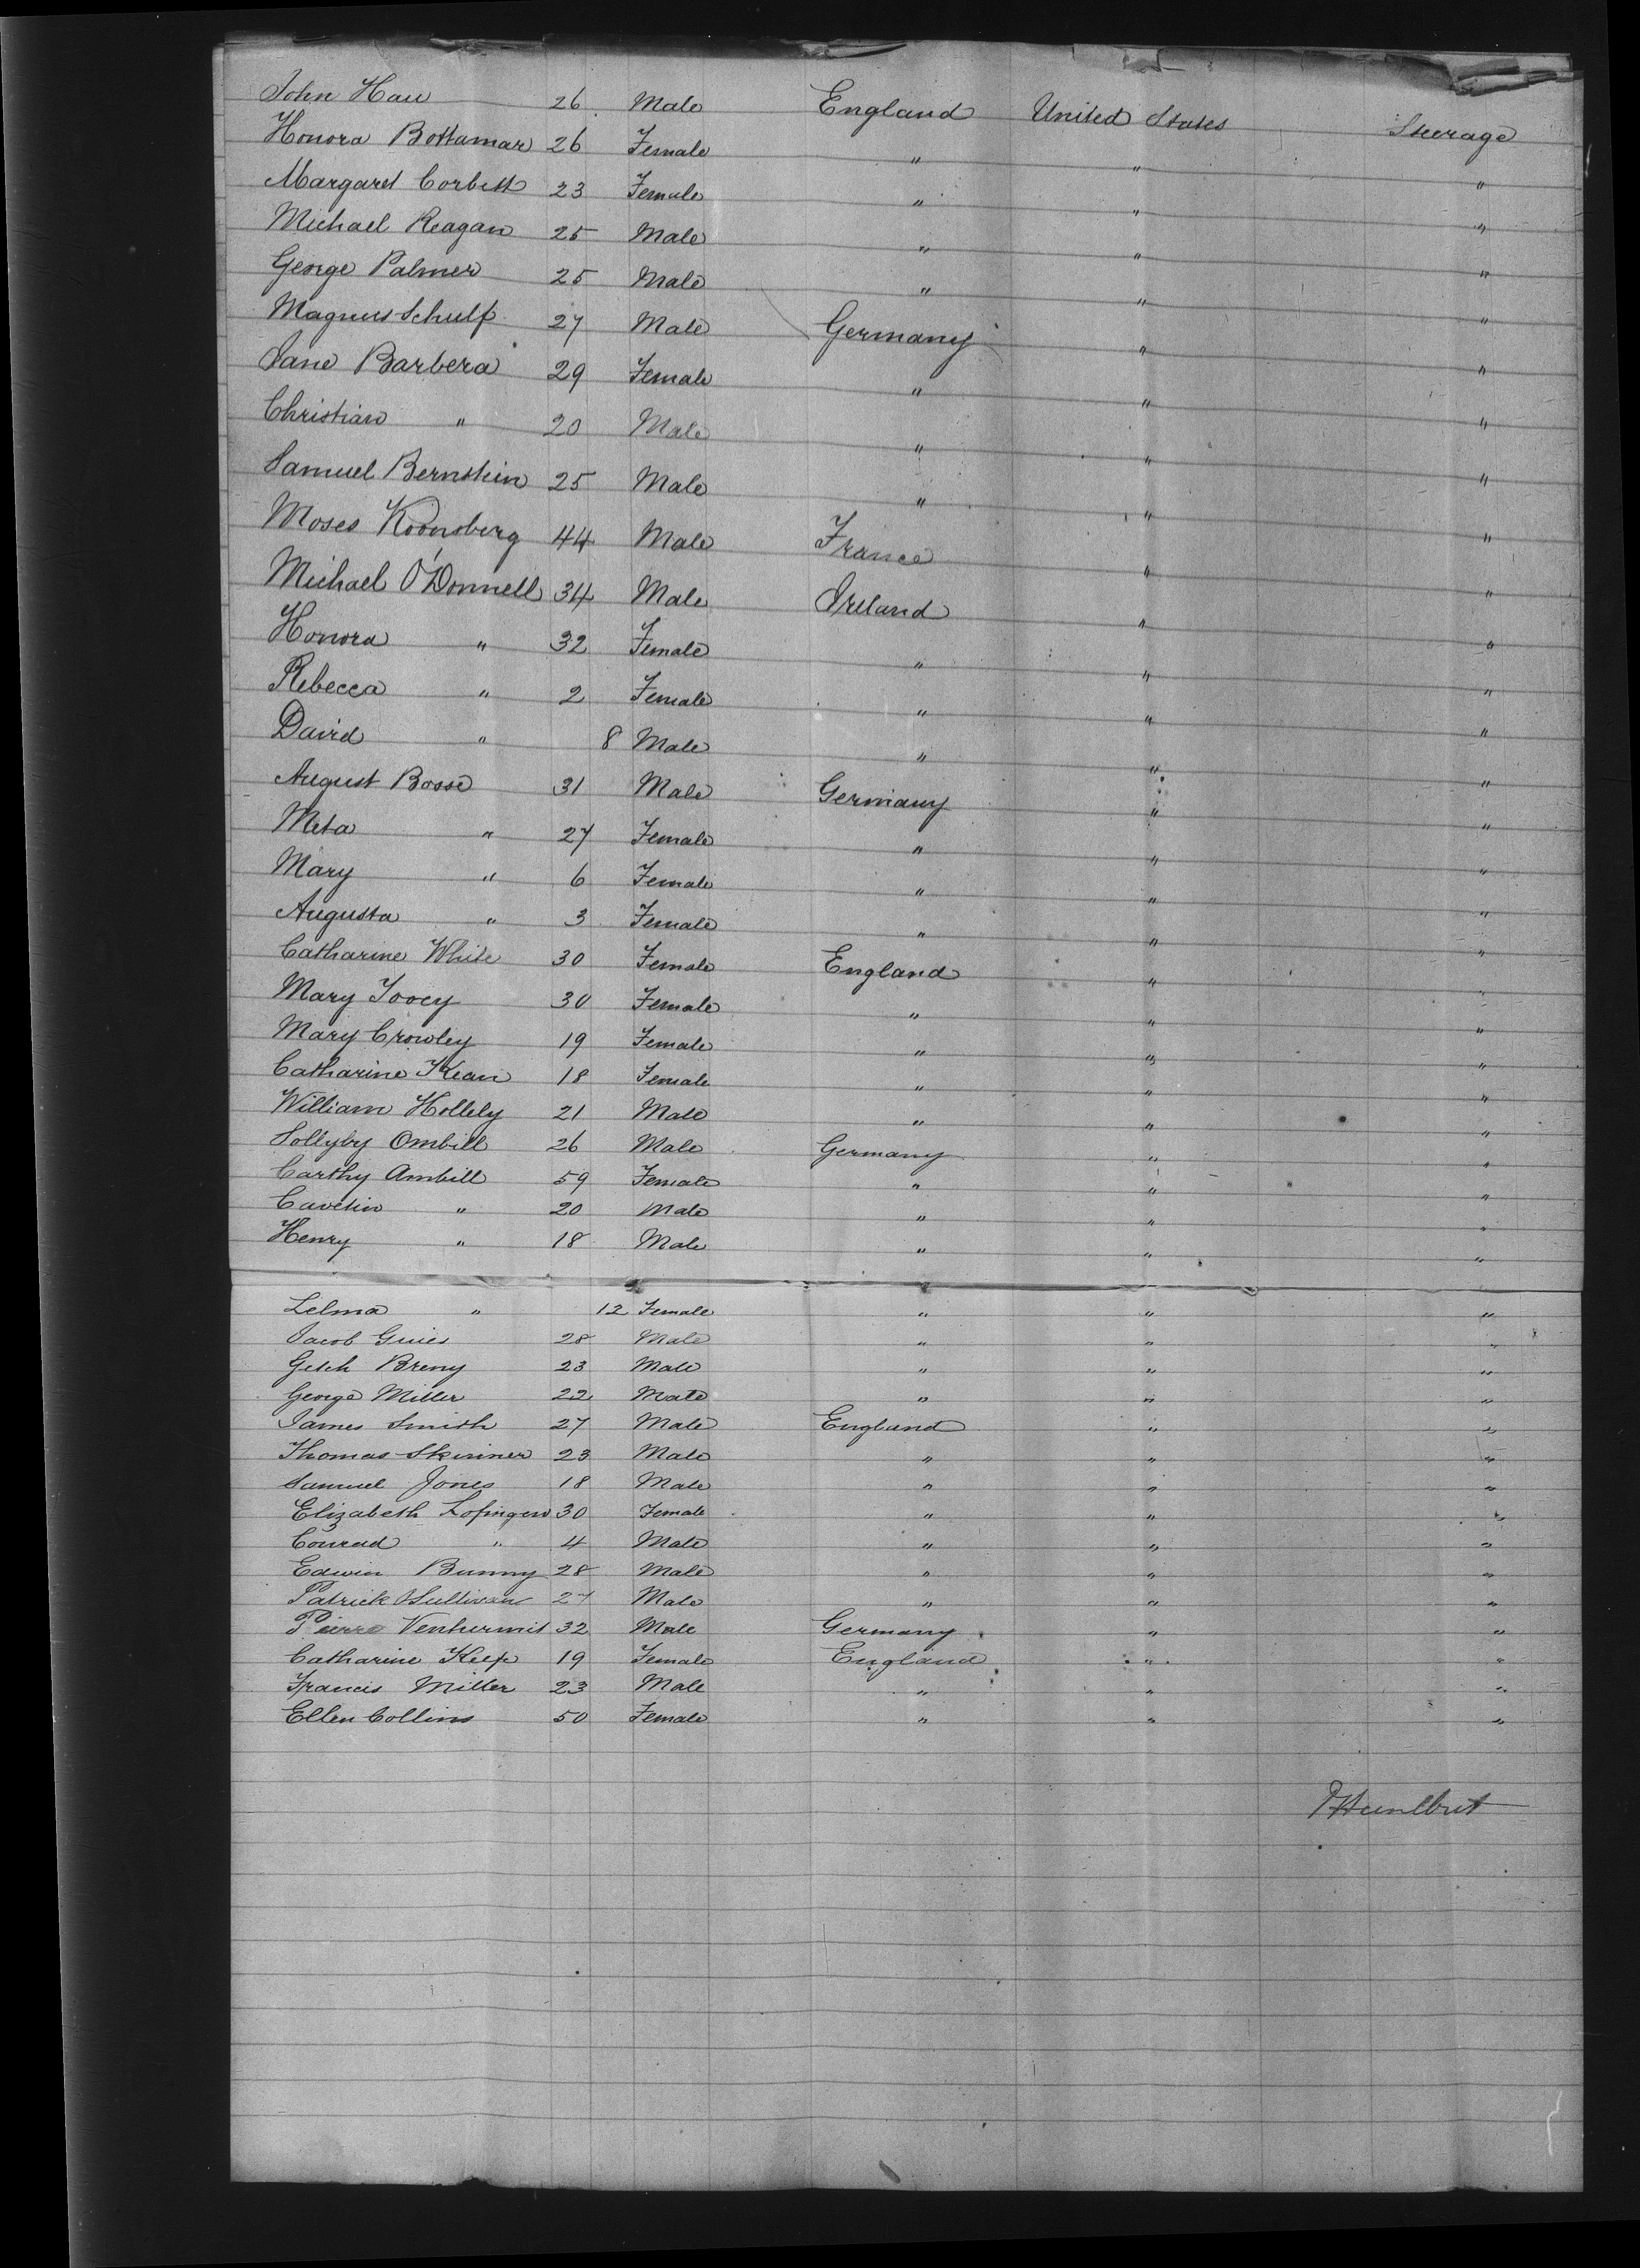 John Hau 26 Male England United States Steerage
Honora Bottamar 26 Female " " "
Margaret Corbett 23 Female " " "
Michael Reagan 25 Male " " "
George Palmer 25 Male " " "
Magnus Schulp 27 Male Germany " "
Jane Barbera 29 Female " " "
Christian " 20 Male " " "
Samuel Bernstein 25 Male " " "
Moses Koonsberg 44 Male France " "
Michael O'Donnell 34 Male Ireland " "
Honora " 32 Female " " "
Rebecca " 2 Female " " "
David " 8 Male " " "
August Bosse 31 Male Germany " "
Meta " 27 Female " " "
Mary " 6 Female " " "
Augusta " 3 Female " " "
Catharine White 30 Female England " "
Mary Tovey 30 Female " " "
Mary Crowley 19 Female " " "
Catharine Kean 18 Female " " "
William Hollely 21 Male " " "
Sollyby Ombill 26 Male Germany " "
Carthy Ambill 59 Female " " "
Cavetin " 20 Male " " "
Henry " 18 Male " " "
Lelma " 12 Female " " "
Jacob 28 Male " " "
Gesch Breny 23 Male " " "
George Miller 22 Male " " "
James Smith 27 Male England " "
Thomas Skinner 23 Male " " "
Samuel Jones 18 Male " " "
Elizabeth Lofingen 30 Female " " "
Conrad " 4 Male " " "
Edwin Bunny 28 Male " " "
Patrick OSullivan 27 Male " " "
Pierre Venhermit 32 Male Germany " "
Catharine Keep 19 Female England " "
Francis Miller 23 Male " " "
Ellen Collins 50 Female " " "